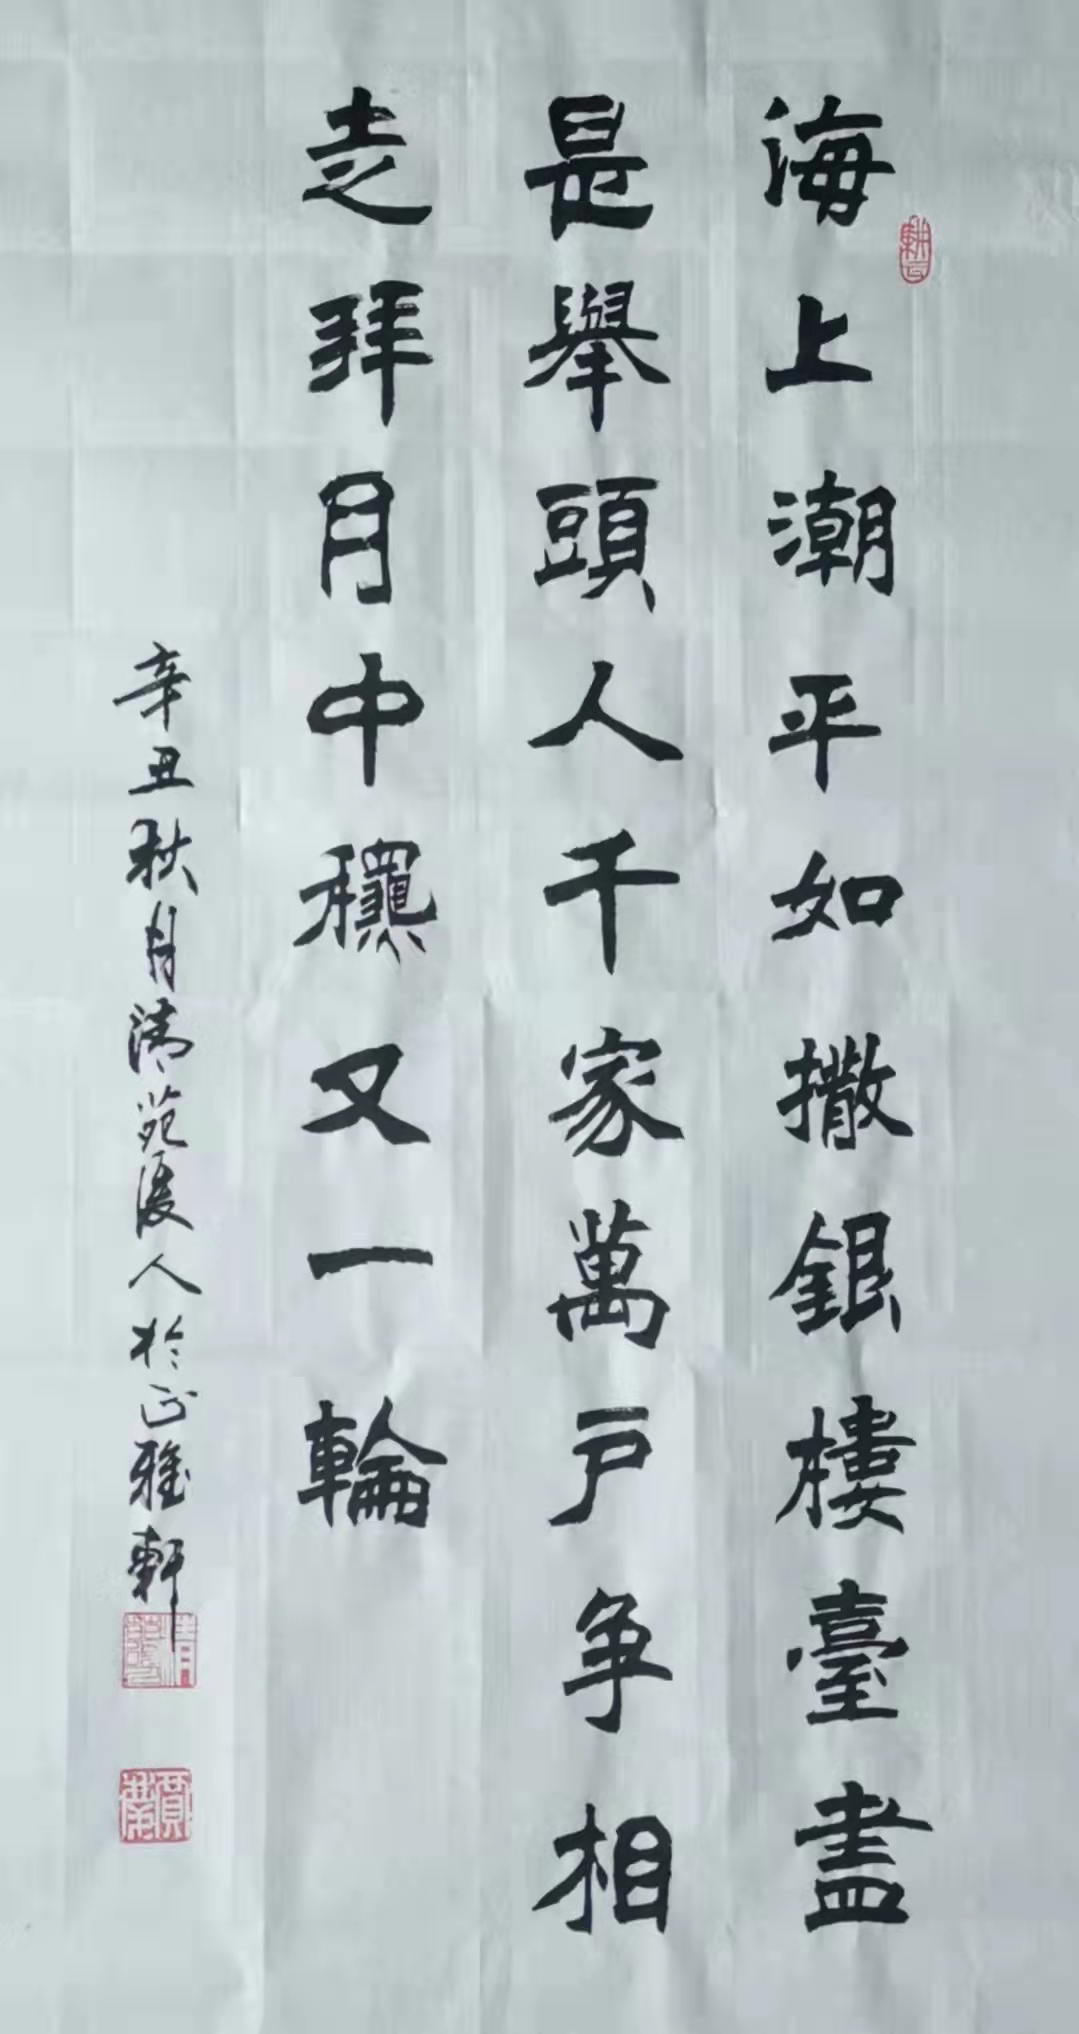 海上潮平如撒銀樓臺盡
是舉頭人千家萬戶争相
走拜月中穐又一輪
辛丑秋月清苑漫人於正雅軒